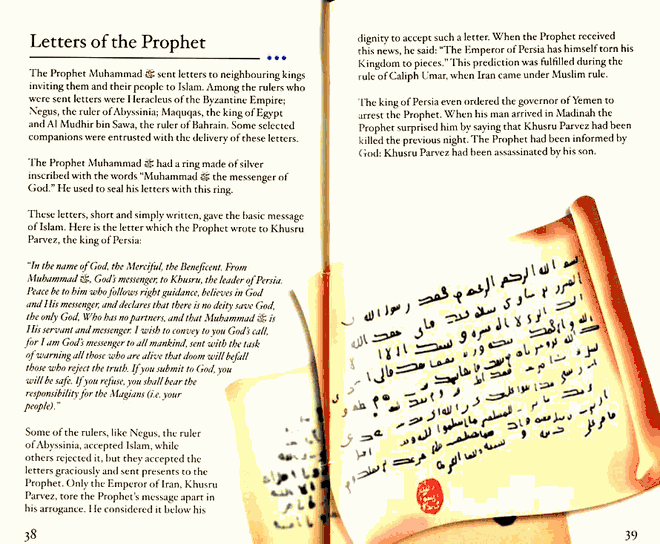 Letters of the Prophet
The Prophet Muhammad ﷺ sent letters to neighbouring kings
inviting them and their people to Islam. Among the rulers who
were sent letters were Heracleus of the Byzantine Empire;
Negus, the ruler of Abyssinia; Maquqas, the king of Egypt
and Al Mudhir bin Sawa, the ruler of Bahrain. Some selected
companions were entrusted with the delivery of these letters.
The Prophet Muhammad ﷺ had a ring made of silver
inscribed with the words “Muhammad ﷺ the messenger of
God.” He used to seal his letters with this ring.
These letters, short and simply written, gave the basic message
of Islam. Here is the letter which the Prophet wrote to Khusru
Parvez, the king of Persia:
“In the name of God, the Merciful, the Beneficent. From
Muhammad ﷺ, God’s messenger, to Khusru, the leader of Persia.
Peace be to him who follows right guidance, believes in God
and His messenger, and declares that there is no deity save God,
the only God, Who has no partners, and that Muhammad ﷺ is
His servant and messenger. I wish to convey to you God’s call,
for I am God’s messenger to all mankind, sent with the task
of warning all those who are alive that doom will befall
those who reject the truth. If you submit to God, you
will be safe. If you refuse, you shall bear the
responsibility for the Magians (i.e. your
people).”
Some of the rulers, like Negus, the ruler
of Abyssinia, accepted Islam, while
others rejected it, but they accepted the
letters graciously and sent presents to the
Prophet. Only the Emperor of Iran, Khusru
Parvez, tore the Prophet’s message apart in
his arrogance. He considered it below his
38
dignity to accept such a letter. When the Prophet received
this news, he said: “The Emperor of Persia has himself torn his
Kingdom to pieces.” This prediction was fulfilled during the
rule of Caliph Umar, when Iran came under Muslim rule.
The king of Persia even ordered the governor of Yemen to
arrest the Prophet. When his man arrived in Madinah the
Prophet surprised him by saying that Khusru Parvez had been
killed the previous night. The Prophet had been informed by
God: Khusru Parvez had been assassinated by his son.
الله الرحمن الرحيم محمد رسول الله
39